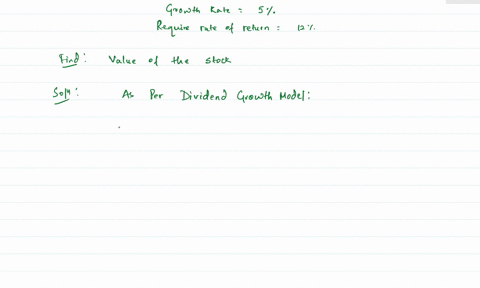 Growth Rate = 5%.
Require rate of return = 12%.
Find: Value of the stock
Soln: As Per Dividend Growth Model: